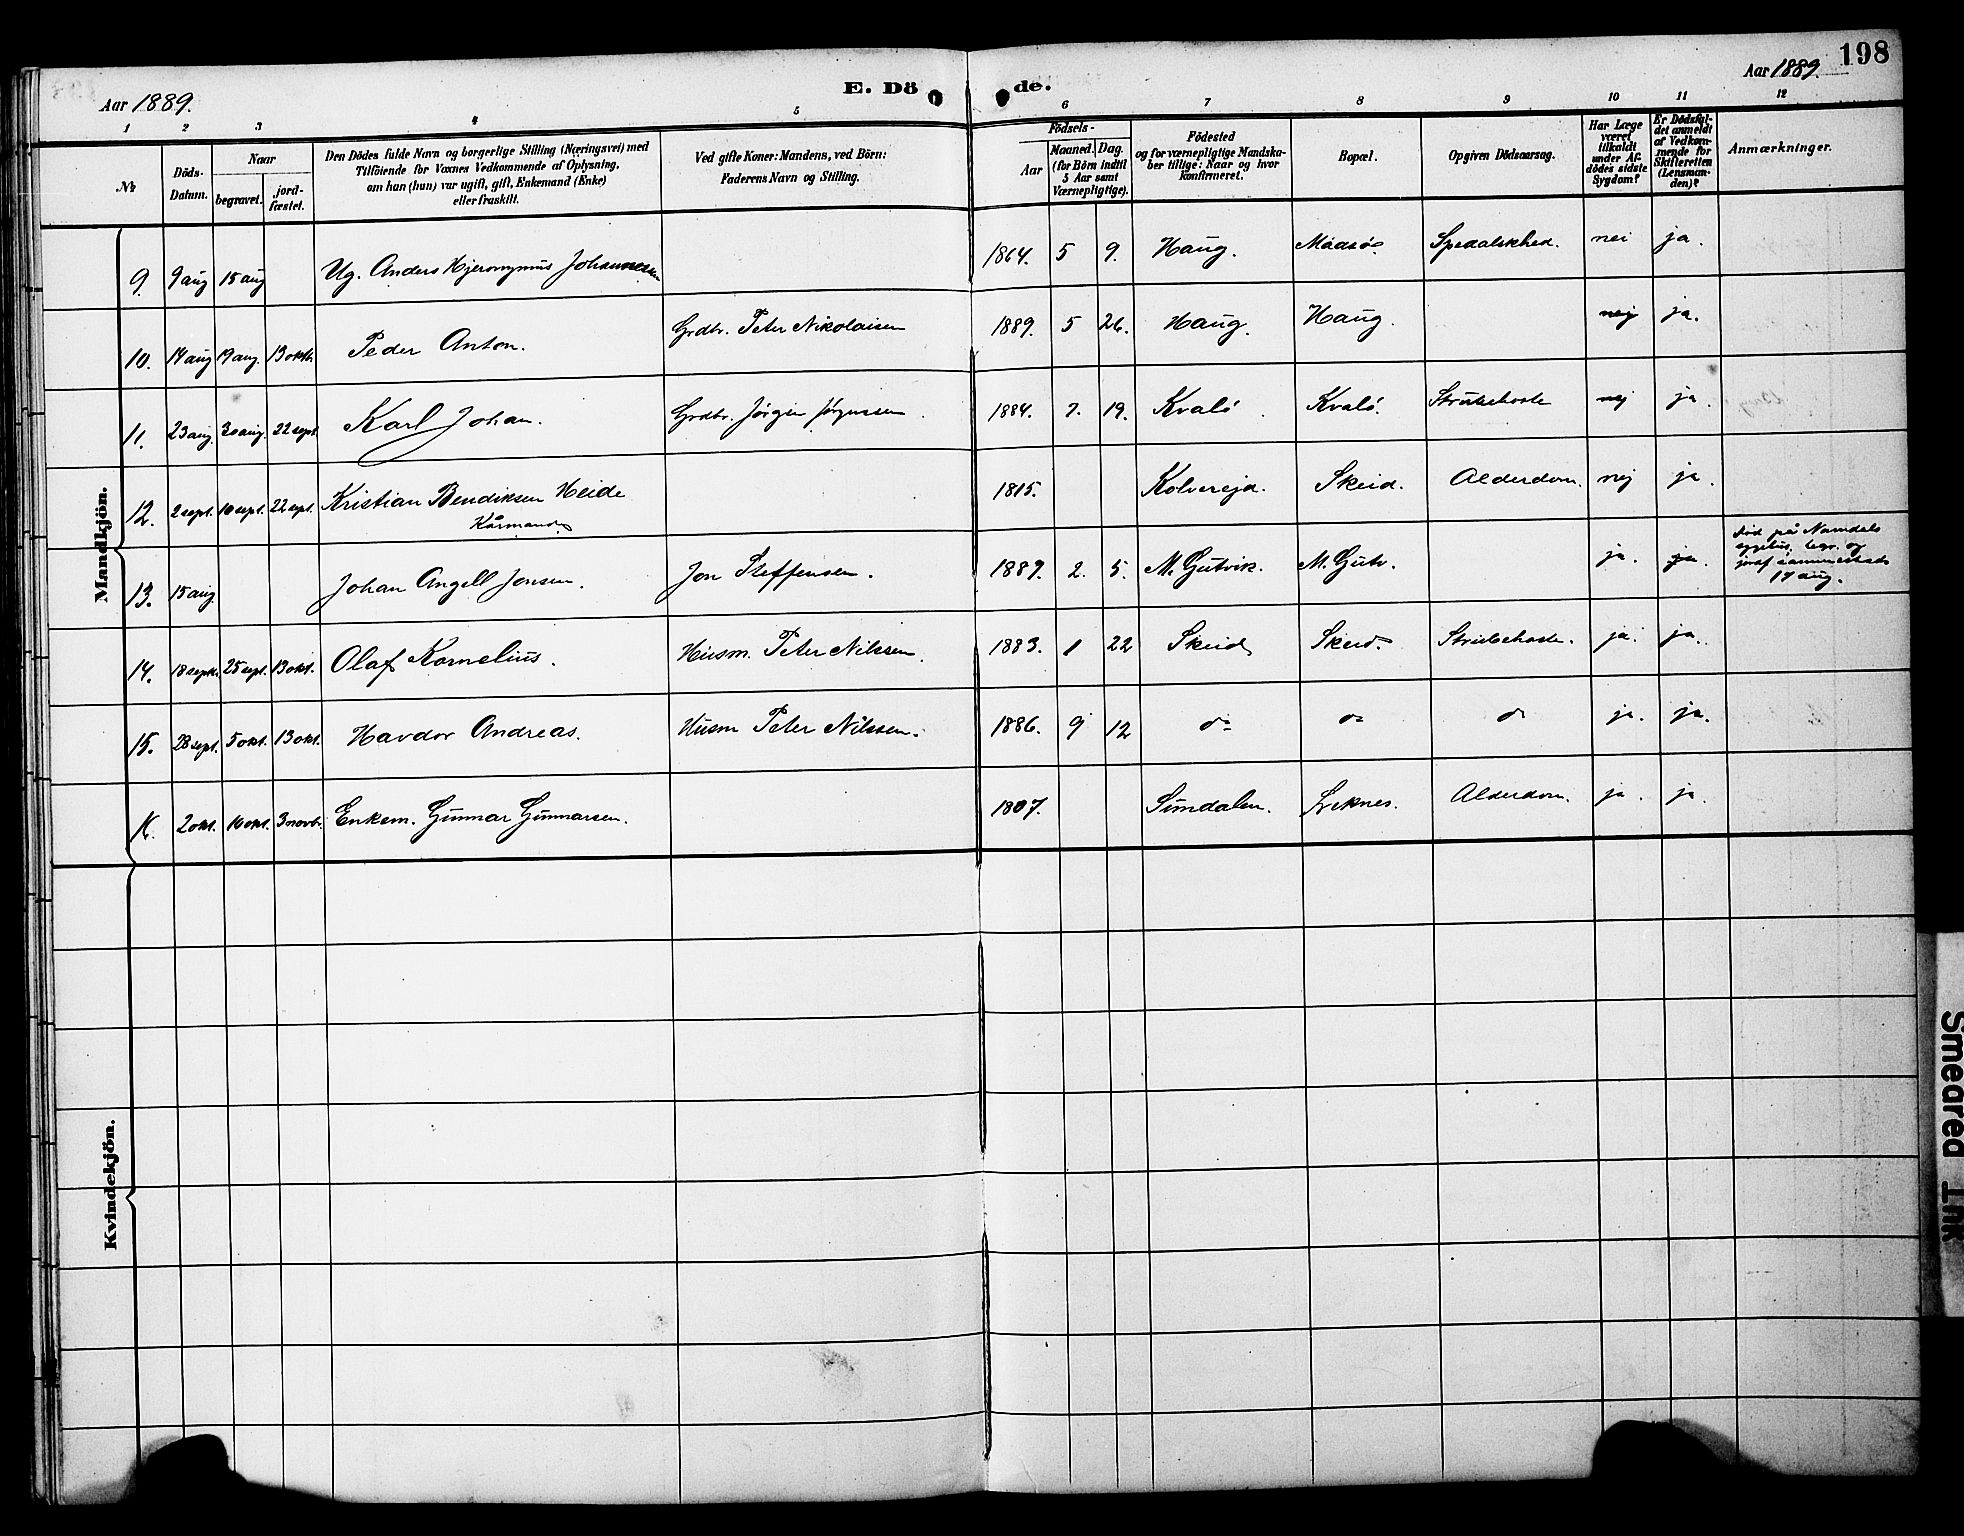 198
Aar 1889.
E. Dö de.
Aar 1889.
1 2 3 4 5 6 7 8 9 10 11 12
№
Döds-Datum.
Naar
begravet.
jord-fæstet.
Den Dödes fulde Navn og borgerlige Stilling (Næringsvei) med
Tilföiende for Voxnes Vedkommende af Oplysning,
om han (hun) var ugift, gift, Enkemand (Enke)
eller fraskilt.
Ved gifte Koner: Mandens, ved Börn:
Faderens Navn og Stilling.
Födsels-
Aar
Maaned. Dag.
(for Börn indtil
5 Aar samt
Værnepligtige).
Födested
og for værnepligtige Mandska-
ber tillige: Naar og hvor
konfirmeret.
Bopæl.
Opgiven Dödsaarsag.
Har Læge
været
tilkaldt
under Af-
dödes sidste
Sygdom?
Er Dödsfal-
det anmeldt
af Vedkom-
mende for
Skifteretten
(Lensman-
den)?
Anmærkninger.
Mandkjön.
9. 9 aug 15 aug Ug. Anders Hjeronymus Johannessen 1864. 5 9. Haug. Madsö Spedalskhed. nei ja.
10. 14 aug 19 aug. 13 oktb. Peder Anton. Grdbr. Peter Nikolaisen 1889. 5 26. Haug. Haug. nej ja.
11. 23 aug. 30 aug. 22 sept. Karl Johan. Grdbr. Jørgen Jørgenssen. 1884. 7. 19. Kvalö. Kvalö. Strubehoste nej ja
12. 2 sept. 10 sept. 22 sept. Kristian Bendiksen Heide 1815. Kolvereid. Skeid. Alderdom. nej ja
Kårmand
13. 15 aug. Johan Angell Jonsen. Jon Steffensen. 1889. 2. 5. M. Gutvik. M. Gutv. ja. ja.
død på Namdals
sygehus, begr. og
jordf sammesteds
17 aug.
14. 18 sept. 25 sept. 13 okt. Olaf Kornelius. Husm. Peter Nilssen. 1883. 1 22 Skeid Skeid Strubehoste. ja. ja.
15. 28 sept. 5 okt. 13 okt. Havdor Andreas. Husm Peter Nilssen. 1886. 9 12 do do do ja. ja.
16. 2 okt. 10 okt. 3 novb. Enkem. Gunnar Gunnarsen. 1807. Sundalen. Leknes. Alderdom. ja. ja.
Kvindekjön.
Smeared Ink